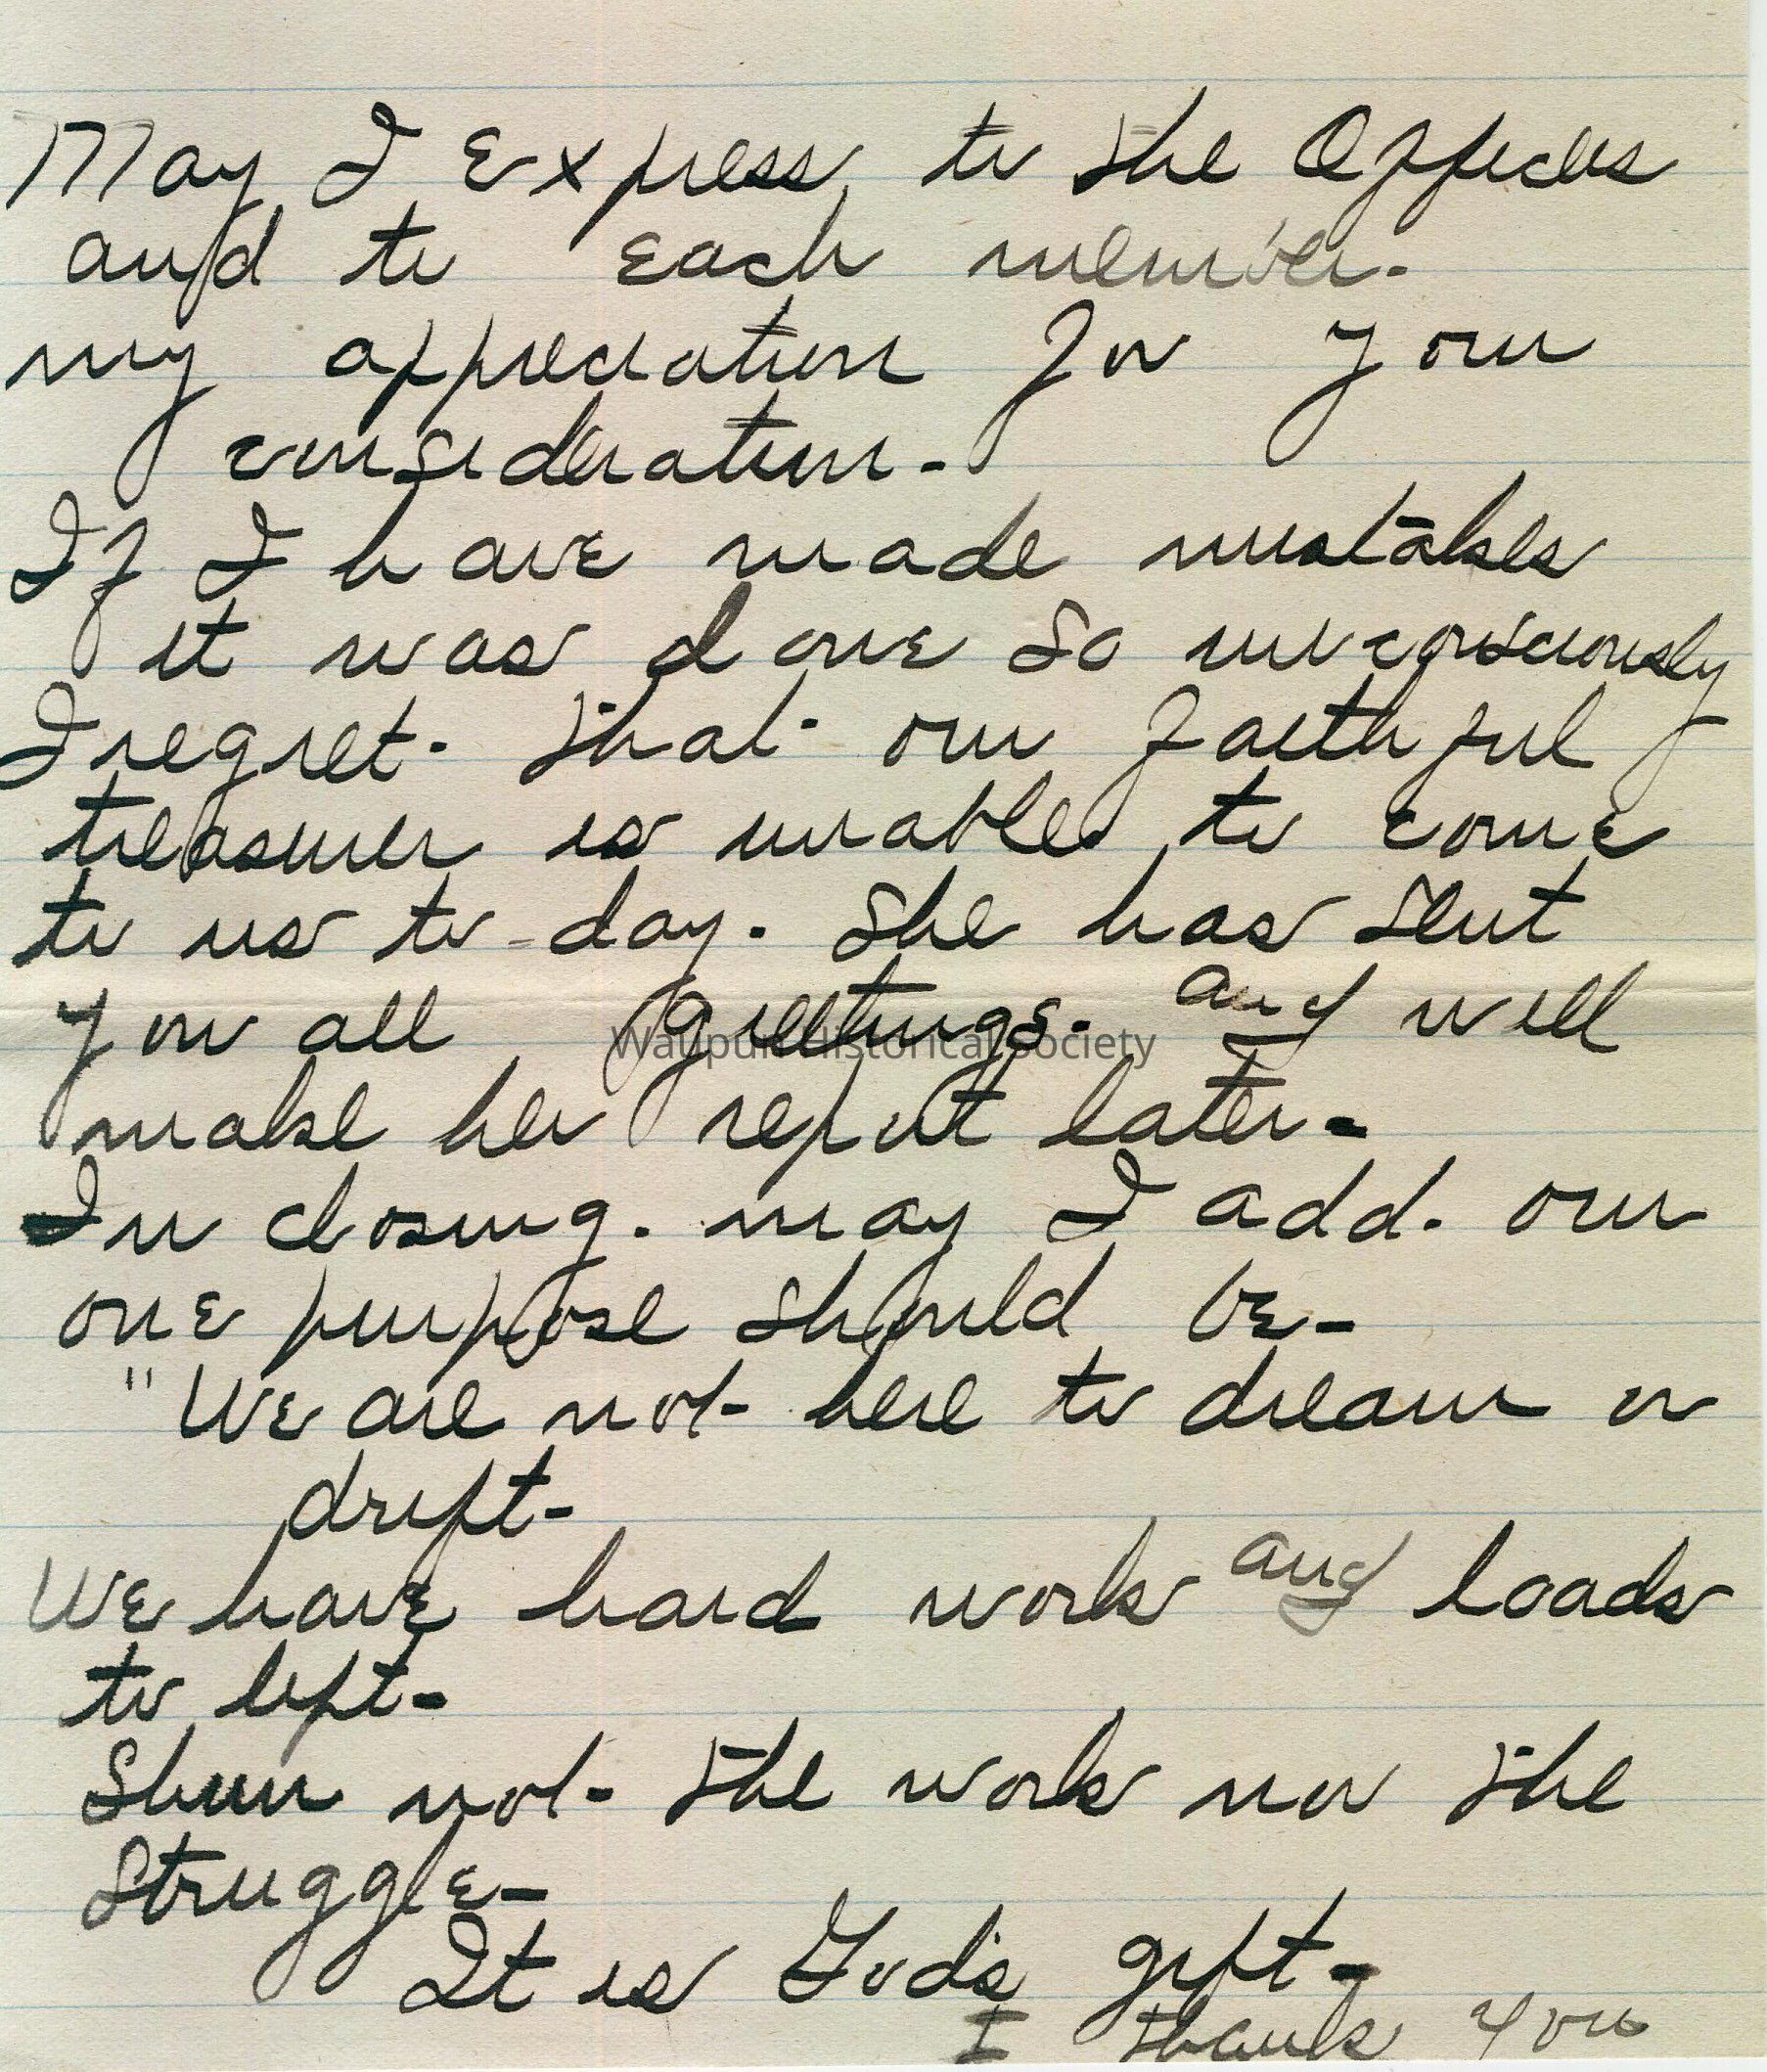 May I Express to the Officers
and to Each member-
my appreciation for your
consideration-
If I have made mistakes
it was done so unconsciously
I regret- that- our faithful
treasurer is unable to come
to us to-day. She has sent
you all greetings- and will
Waupun Historical Society
make her report later-
In closing- may I add- our
one purpose should be-
"We are not- here to dream or
drift-
We have hard work and loads
to lift-
Shun not- the work nor the
Struggle-
It is God's gift-
I thank you